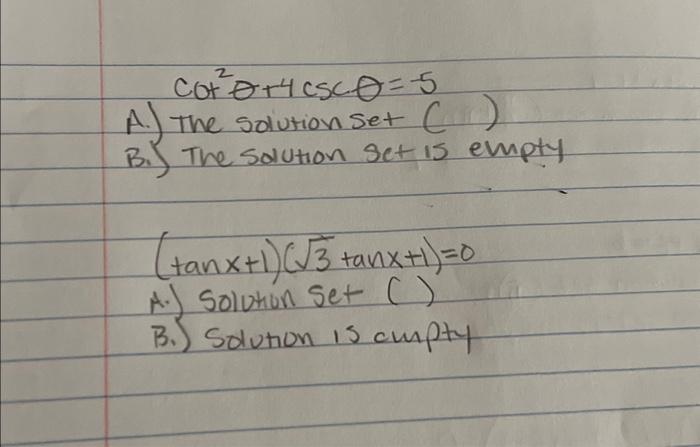 cot²θ+4cscθ=-5
A.) The solution set ( )
B.) The solution set is empty
(tanx+1)(√3 tanx+1)=0
A.) Solution Set ( )
B.) Solution is empty